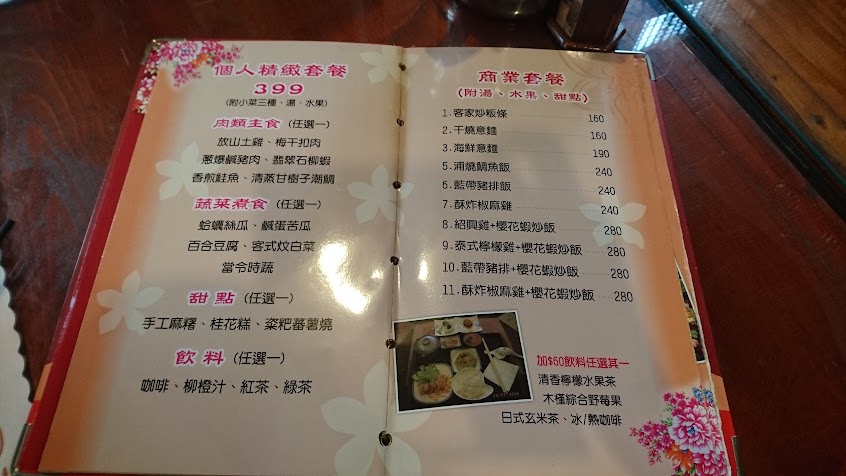 個人精緻套餐
399
(附小菜三種、湯、水果)
肉類主食(任選一)
放山土雞、梅干扣肉
蔥爆鹹豬肉、翡翠石柳蝦
香煎鮭魚、清蒸甘樹子潮鯛
蔬菜煮食(任選一)
蛤蠣絲瓜、鹹蛋苦瓜
百合豆腐、客式炆白菜
當令時蔬
甜點(任選一)
手工麻糬、桂花糕、粢粑蕃薯燒
飲料(任選一)
咖啡、柳橙汁、紅茶、綠茶
商業套餐
(附湯、水果、甜點)
1.客家炒粄條 160
2.干燒意麵 160
3.海鮮意麵 190
5.浦燒鯛魚飯 240
6.藍帶豬排飯 240
7.酥炸椒麻雞 240
8.紹興雞+櫻花蝦炒飯 280
9.泰式檸檬雞+櫻花蝦炒飯 280
10.藍帶豬排+櫻花蝦炒飯 280
11.酥炸椒麻雞+櫻花蝦炒飯 280
加$60飲料任選其一
清香檸檬水果茶
木槿綜合野莓果
日式玄米茶、冰/熱咖啡